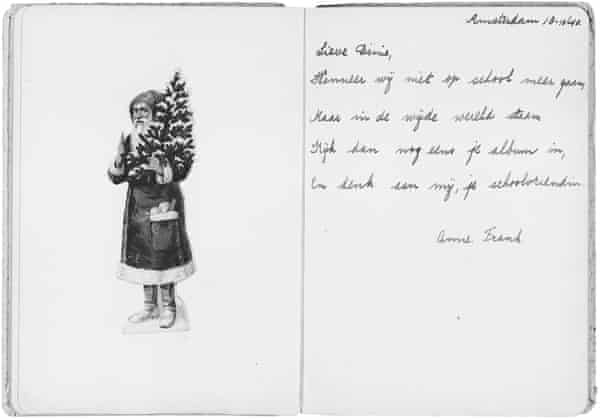 Amsterdam
Lieve Dinie,
Wenneer wij niet op school meer gaan,
Maar in de wijde wereld staan
Kijk dan nog eens je album in,
En denk aan mij, je schoolvriendin
Anne Frank.